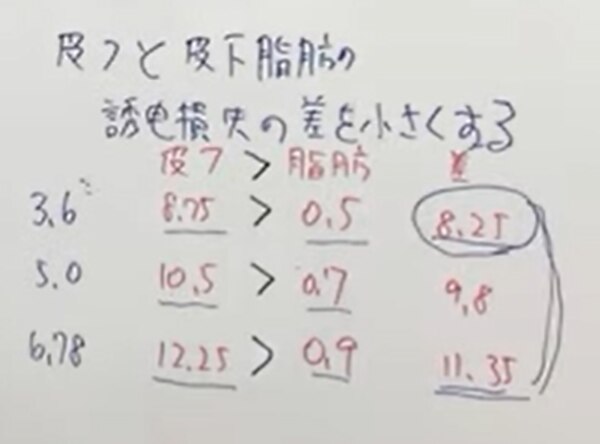 皮フと皮下脂肪の
誘电損失の差を小さくする
皮フ > 脂肪 差
3.6 8.75 > 0.5 8.25
5.0 10.5 > 0.7 9.8
6.78 12.25 > 0.9 11.35